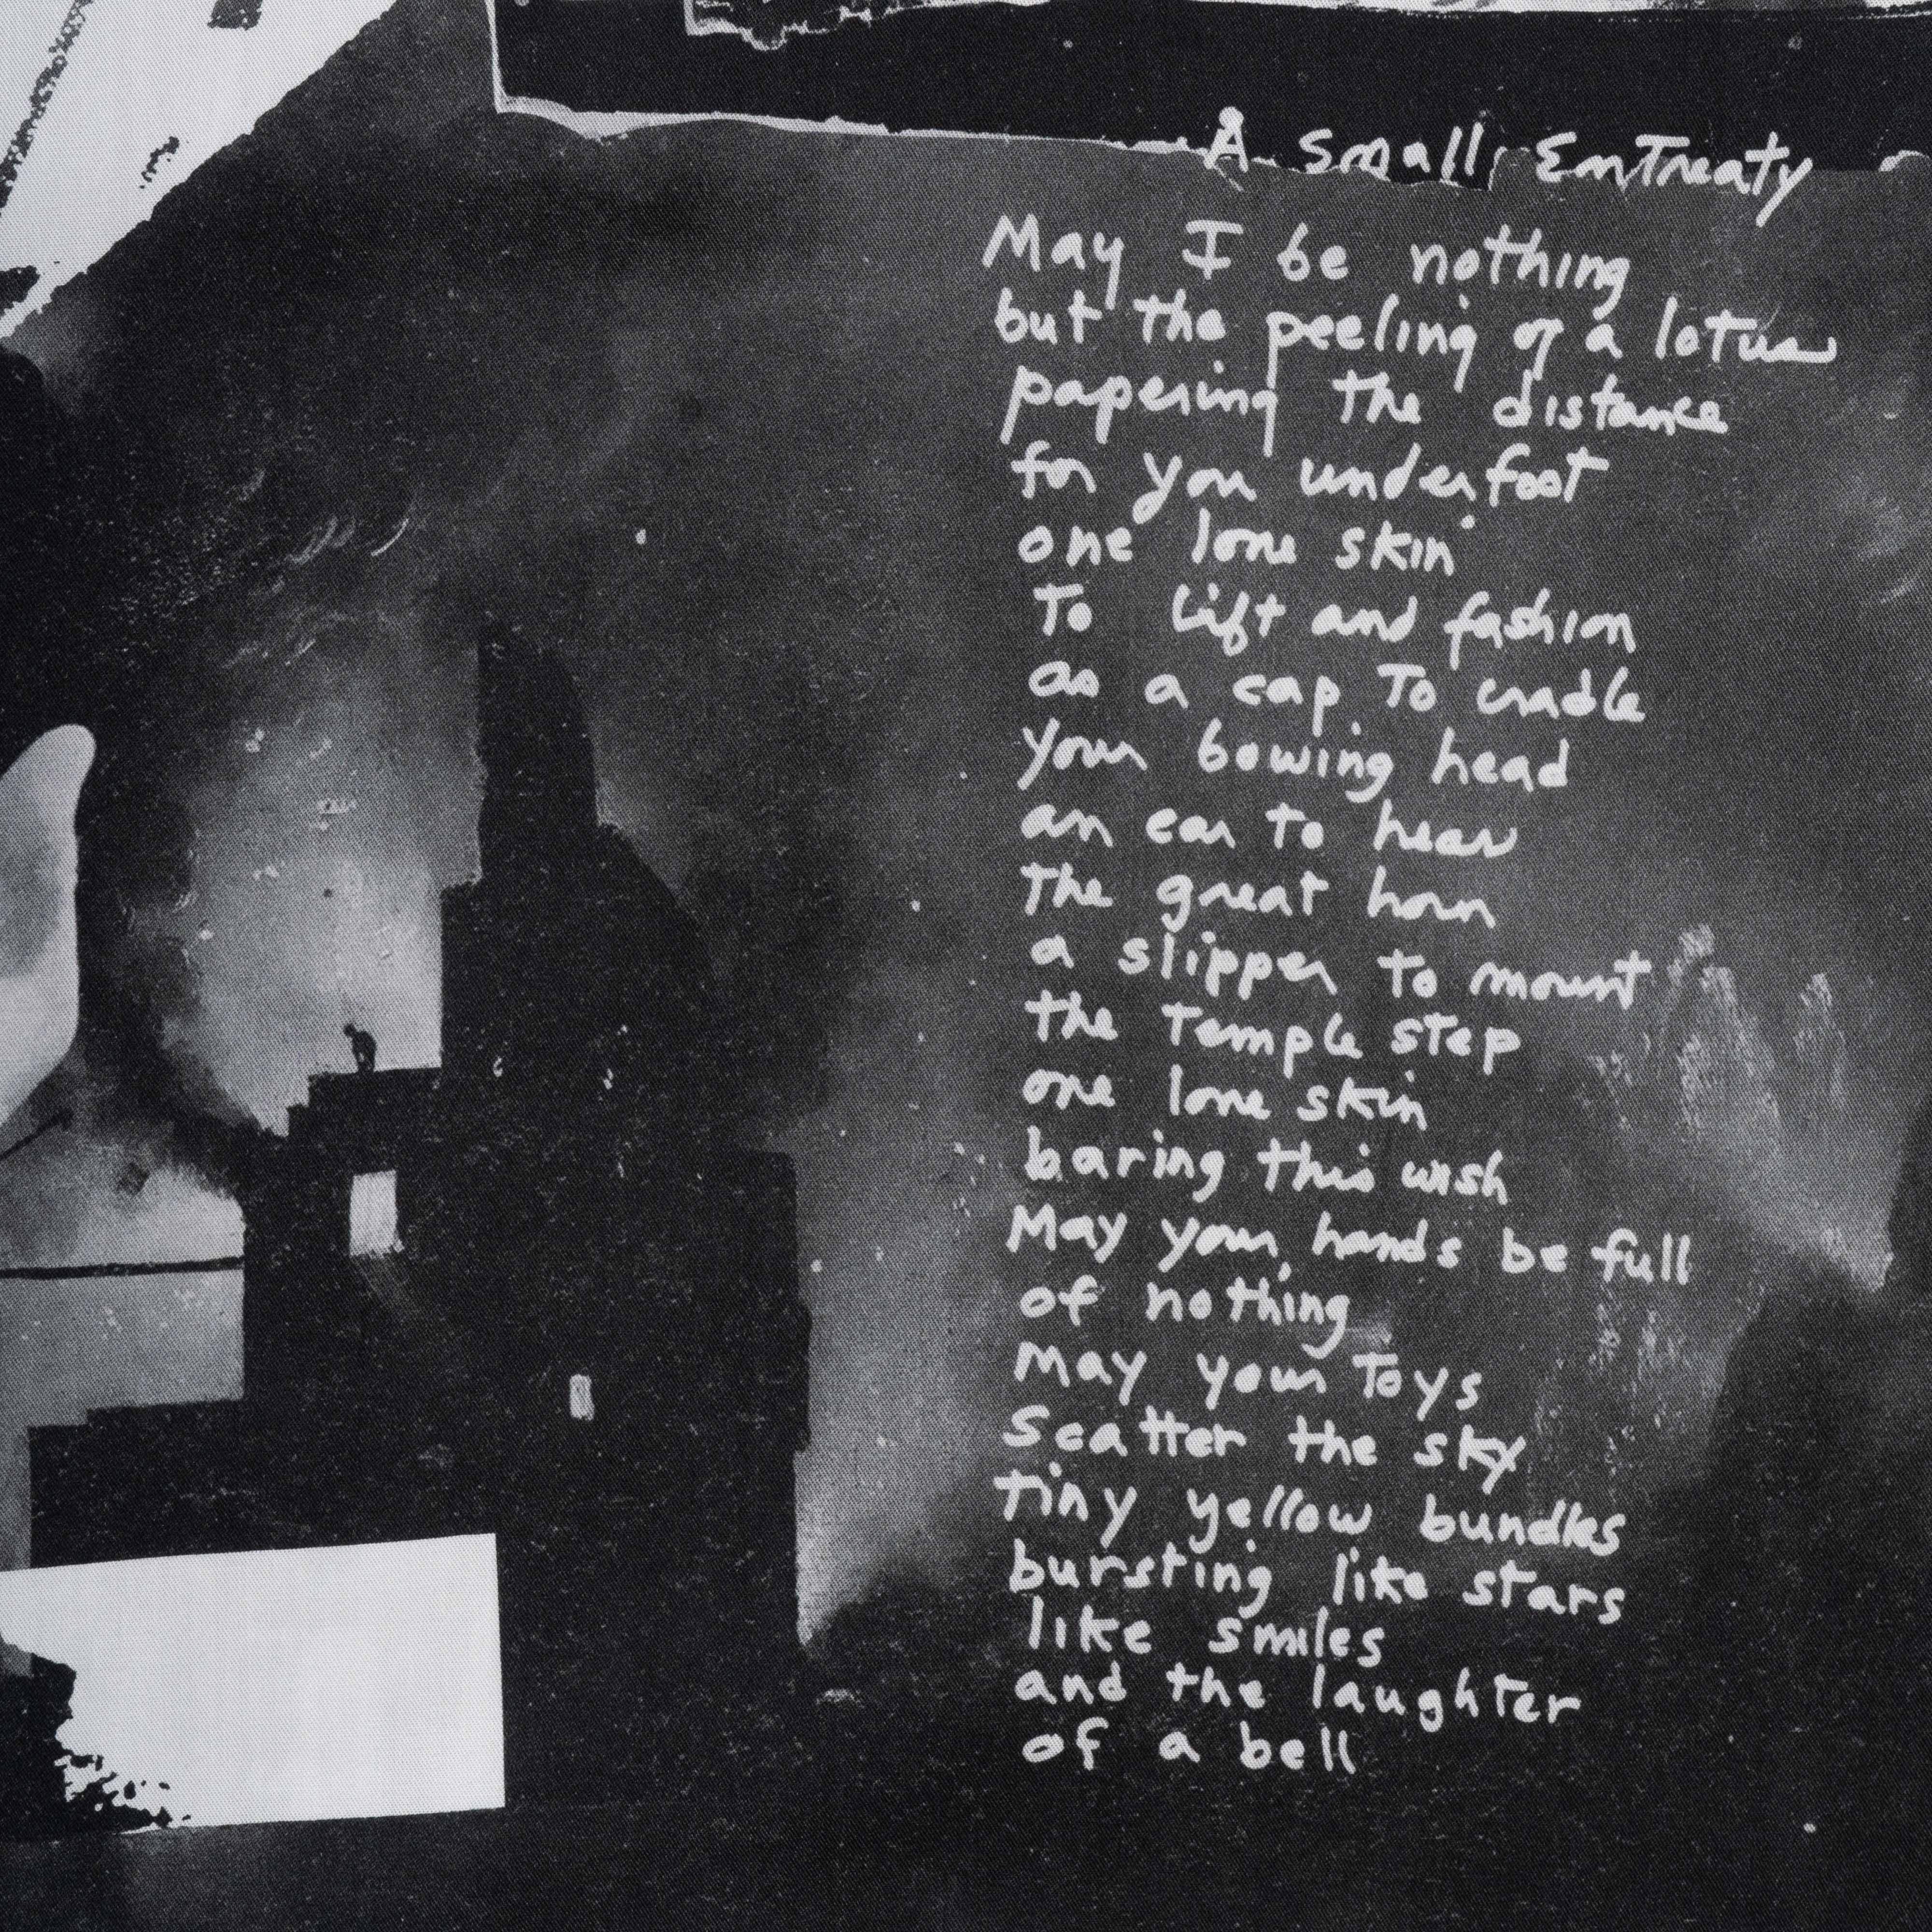 A Small Entreaty
May I be nothing
but the peeling of a lotus
papering the distance
for you underfoot
one lone skin
To lift and fashion
as a cap To cradle
your bowing head
an ear to hear
The great horn
a slipper to mount
the Temple step
one lone skin
baring this wish
May your hands be full
of nothing
May your Toys
Scatter the sky
tiny yellow bundles
bursting like stars
like smiles
and the laughter
of a bell